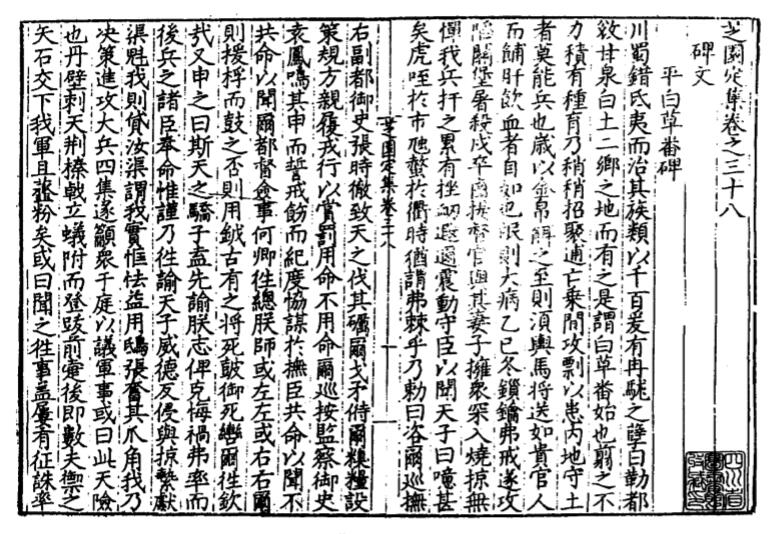 芝園定集卷之三十八
碑文
平白草番碑
川蜀錯氐夷而治其族類以千百爰有冉駹之孽曰勒都
敘甘泉白土二鄉之地而有之是謂白草番始也翦之不
力積有種育乃稍稍招聚逋亡乗間攻剽以患内地守土
者莫能兵也歳以金帛餌之至則湏輿馬將送如貴官人
而餔肝飲血者自如也限則大病乙巳冬鎖鑰弗戒遂攻
關堡屠殺戍卒督官與其妻子擁衆深入燒掠無
憚我兵扞之累有挫衂遐邇震動守臣以聞天子曰噫甚
矣虎咥於市虺螫於衢時猶謂弗棘乎乃勅曰咨爾巡撫
芝園定集卷三十八
右副都御史張時徹致天之伐其礪爾戈矛偫爾糗糧設
策規方親履戎行以賞罰用命不用命爾巡按監察御史
袁鳳鳴其申而誓戒飭而紀度協謀於撫臣共命以聞不
共命以聞爾都督僉事何卿徃總朕師或左左或右右爾
則援桴而鼓之否則用鉞古有之将死鼓御死轡爾徃欽
我又申之曰斯天之驕子盍先諭朕志俾克悔禍弗率而
後兵之諸臣奉命惟謹乃徃諭天子威德反侵與掠縶獻
渠魁我則貸汝渠謂我實恇怯益用鴟張奮其爪角我乃
決策進攻大兵四集遂籲衆于庭以議軍事或曰此天險
也丹壁刺天荆榛戟立蟻附而登跋前疐後即數夫禦之
矢石交下我軍且虀粉矣或曰聞之徃事盖屢有征誅率